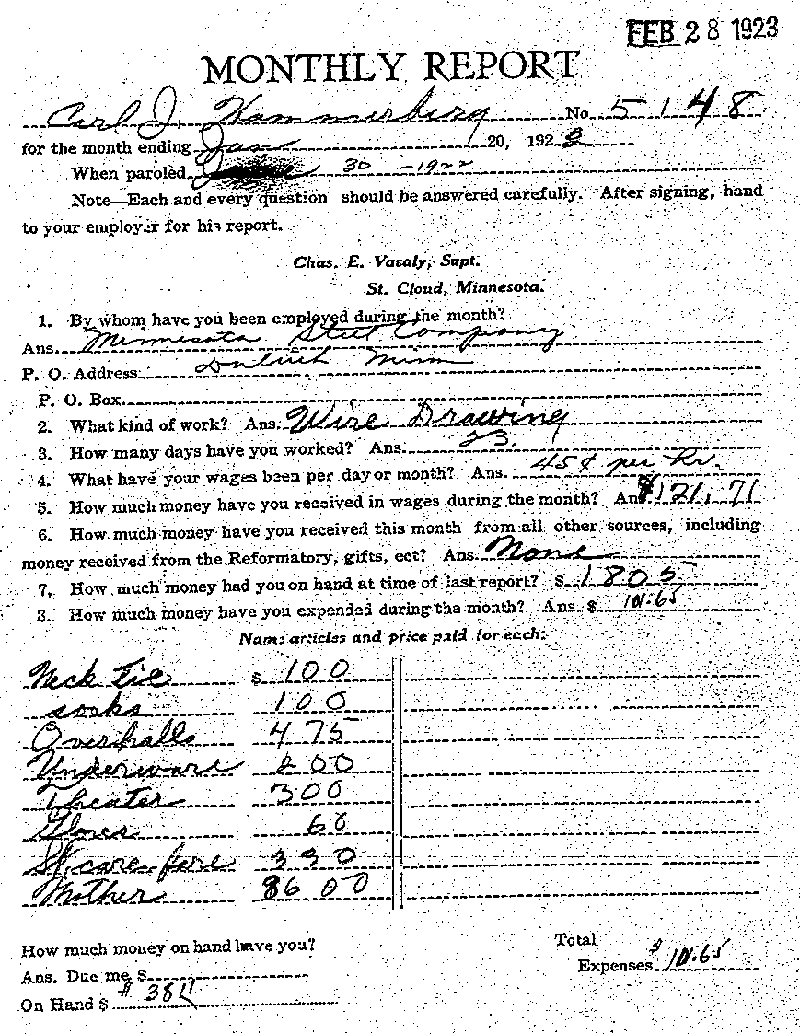 FEB 28 1923
MONTHLY REPORT
Carl J. Hammerberg No. 5148
for the month ending Jan 20, 192
When paroled 30 -1922
Note—Each and every question should be answered carefully. After signing, hand
to your employer for his report.
Chas. E. Vasaly, Supt.
St. Cloud, Minnesota.
1. By whom have you been employed during the month?
Ans. Minnesota Steel Company
P. O. Address Duluth Minn
P. O. Box
2. What kind of work? Ans. Wire Drawing
3. How many days have you worked? Ans. 23.
4. What have your wages been per day or month? Ans. 45¢ per hr.
5. How much money have you received in wages during the month? Ans $121.71
6. How much money have you received this month from all other sources, including
money received from the Reformatory, gifts, ect? Ans. None
7. How much money had you on hand at time of last report? $ 1805
8. How much money have you expended during the month? Ans. $ 101.65
Name articles and price paid for each:
Neck Tie $ 100
socks 100
Overhalls 475
Underware 200
Theater 300
Gloves 60
St. care fare 330
Mother 8600
How much money on hand have you?
Total
Expenses $ 101.65
Ans. Due me $
On Hand $ $ 3811